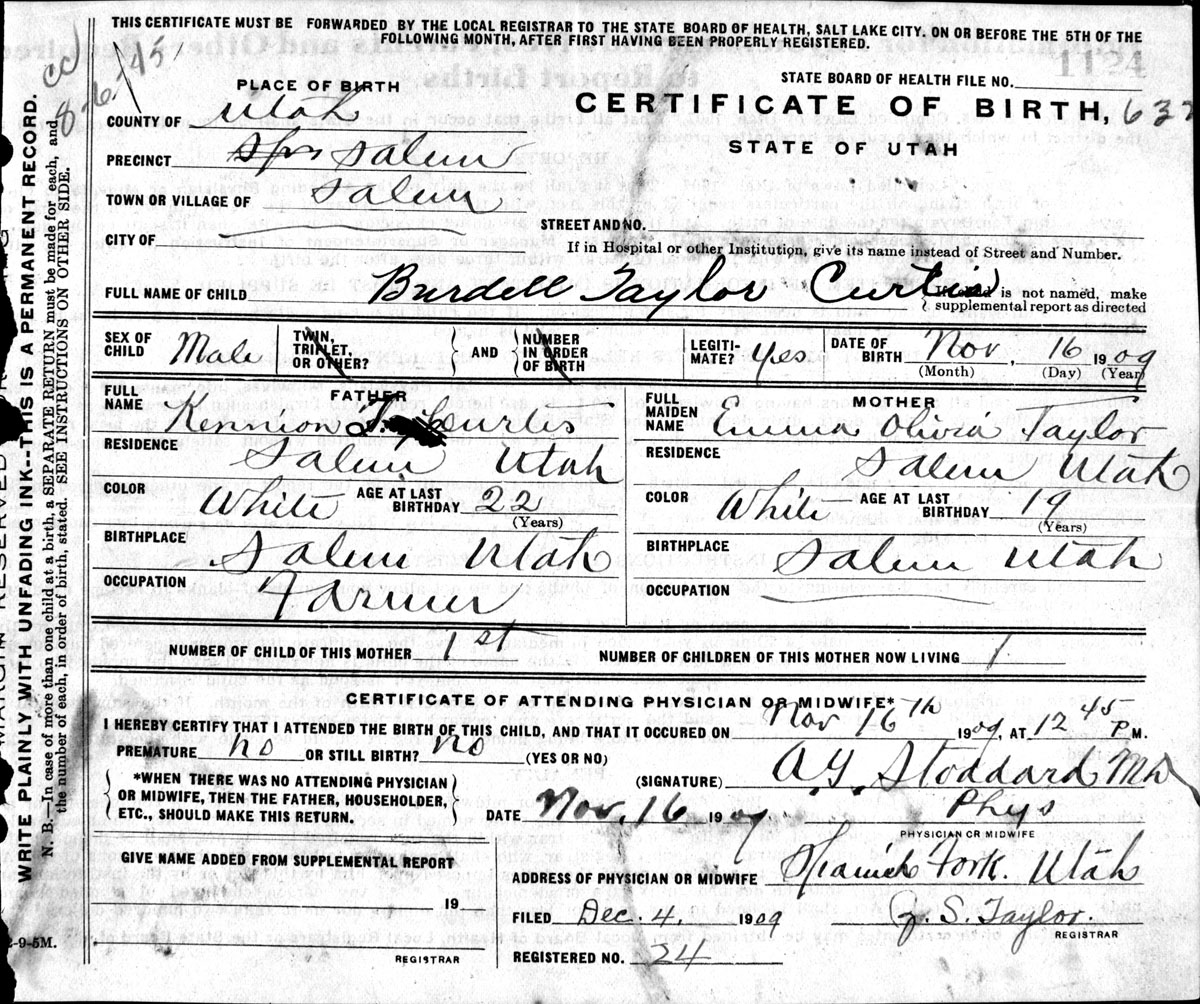 THIS CERTIFICATE MUST BE FORWARDED BY THE LOCAL REGISTRAR TO THE STATE BOARD OF HEALTH, SALT LAKE CITY, ON OR BEFORE THE 5TH OF THE
FOLLOWING MONTH, AFTER FIRST HAVING BEEN PROPERLY REGISTERED.
1124
8-6-45
PLACE OF BIRTH
STATE BOARD OF HEALTH FILE NO.
COUNTY OF Utah
CERTIFICATE OF BIRTH, 632
PRECINCT Salem
STATE OF UTAH
TOWN OR VILLAGE OF Salem
STREET AND NO.
CITY OF
If in Hospital or other Institution, give its name instead of Street and Number.
FULL NAME OF CHILD Burdell Taylor Curtis { If child is not named, make
supplemental report as directed
SEX OF CHILD Male TWIN, TRIPLET, OR OTHER? } AND { NUMBER IN ORDER OF BIRTH LEGITI-MATE? Yes DATE OF BIRTH Nov. 16 1909
(Month) (Day) (Year)
FATHER
MOTHER
FULL NAME Kennion Curtis
FULL MAIDEN NAME Emma Olivia Taylor
RESIDENCE Salem Utah
RESIDENCE Salem Utah
COLOR White AGE AT LAST BIRTHDAY 22 (Years)
COLOR White AGE AT LAST BIRTHDAY 19 (Years)
BIRTHPLACE Salem Utah
BIRTHPLACE Salem Utah
OCCUPATION Farmer
OCCUPATION
NUMBER OF CHILD OF THIS MOTHER 1st
NUMBER OF CHILDREN OF THIS MOTHER NOW LIVING 1
CERTIFICATE OF ATTENDING PHYSICIAN OR MIDWIFE*
I HEREBY CERTIFY THAT I ATTENDED THE BIRTH OF THIS CHILD, AND THAT IT OCCURED ON Nov 16th 1909, AT 12 45 P.M.
PREMATURE no OR STILL BIRTH? no (YES OR NO)
(SIGNATURE) A.G. Stoddard MD
*WHEN THERE WAS NO ATTENDING PHYSICIAN
OR MIDWIFE, THEN THE FATHER, HOUSEHOLDER,
ETC., SHOULD MAKE THIS RETURN.
DATE Nov. 16 1909 Phys
PHYSICIAN OR MIDWIFE
GIVE NAME ADDED FROM SUPPLEMENTAL REPORT
ADDRESS OF PHYSICIAN OR MIDWIFE Spanish Fork. Utah
19
FILED Dec. 4. 1909 S. Taylor.
REGISTRAR
REGISTRAR
REGISTERED NO. 24
2-9-5M.
WRITE PLAINLY WITH UNFADING INK--THIS IS A PERMANENT RECORD.
N. B.—In case of more than one child at a birth, a SEPARATE RETURN must be made for each, and
the number of each, in order of birth, stated. SEE INSTRUCTIONS ON OTHER SIDE.